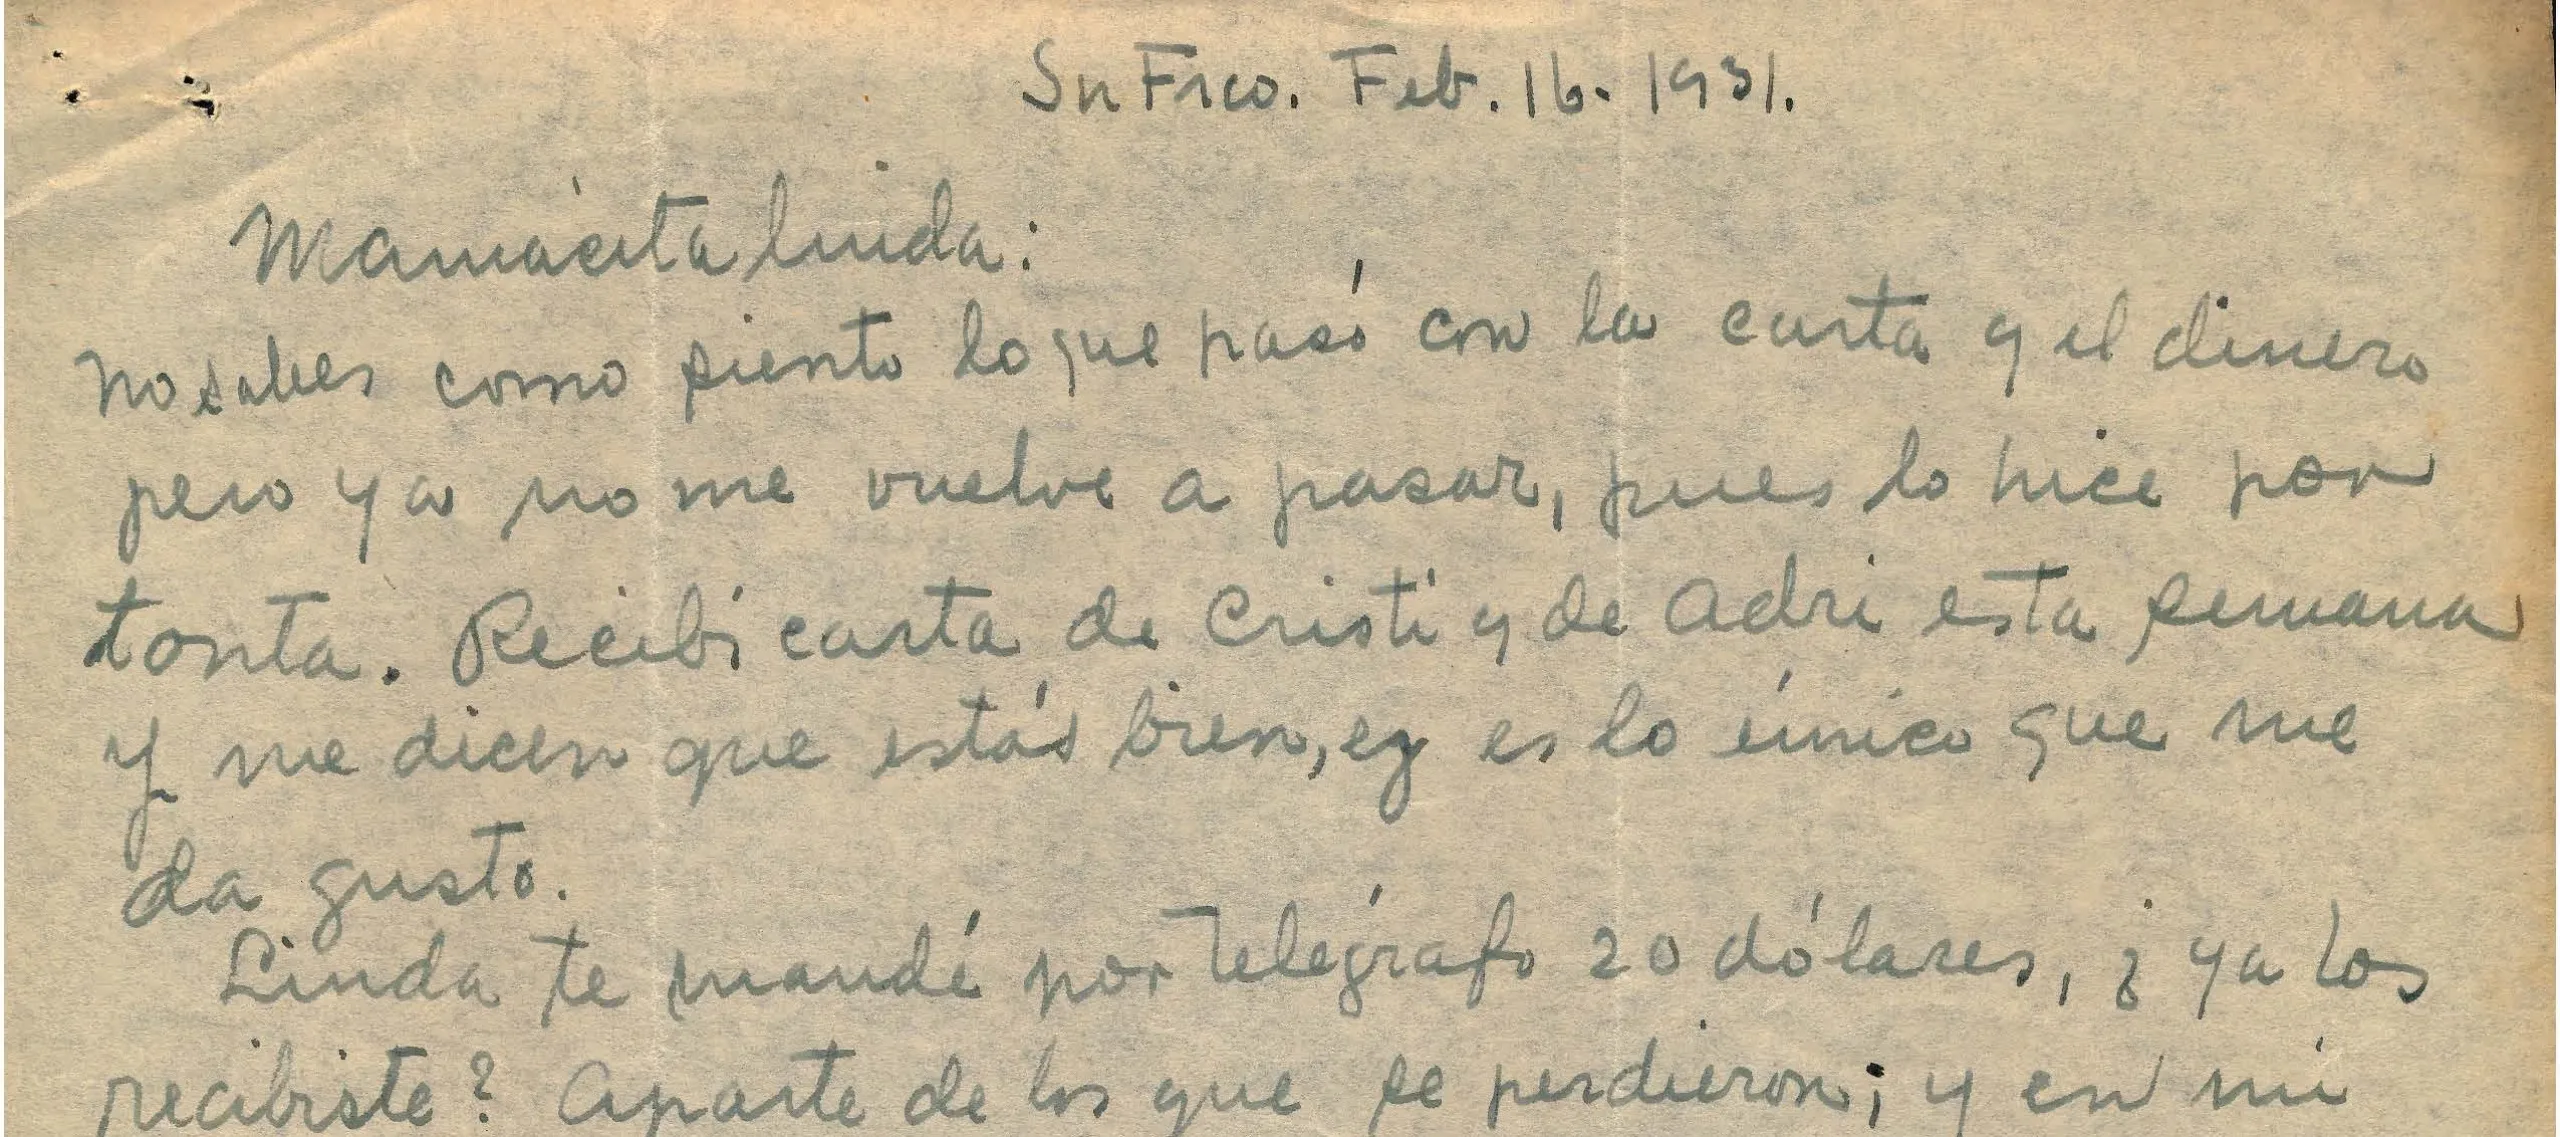 Sn Frco. Feb. 16. 1931.
Mamácita linda:
No sabes como siento lo que pasó con la carta y el dinero
pero ya no me vuelve a pasar, pues lo hice por
tonta. Recibí carta de Cristi y de Adri esta semana
y me dicen que estás bien, ey es lo único que me
da gusto.
Linda te mandé por telégrafo 20 dólares, ¿ya los
recibiste? Aparte de los que se perdieron; y en mi